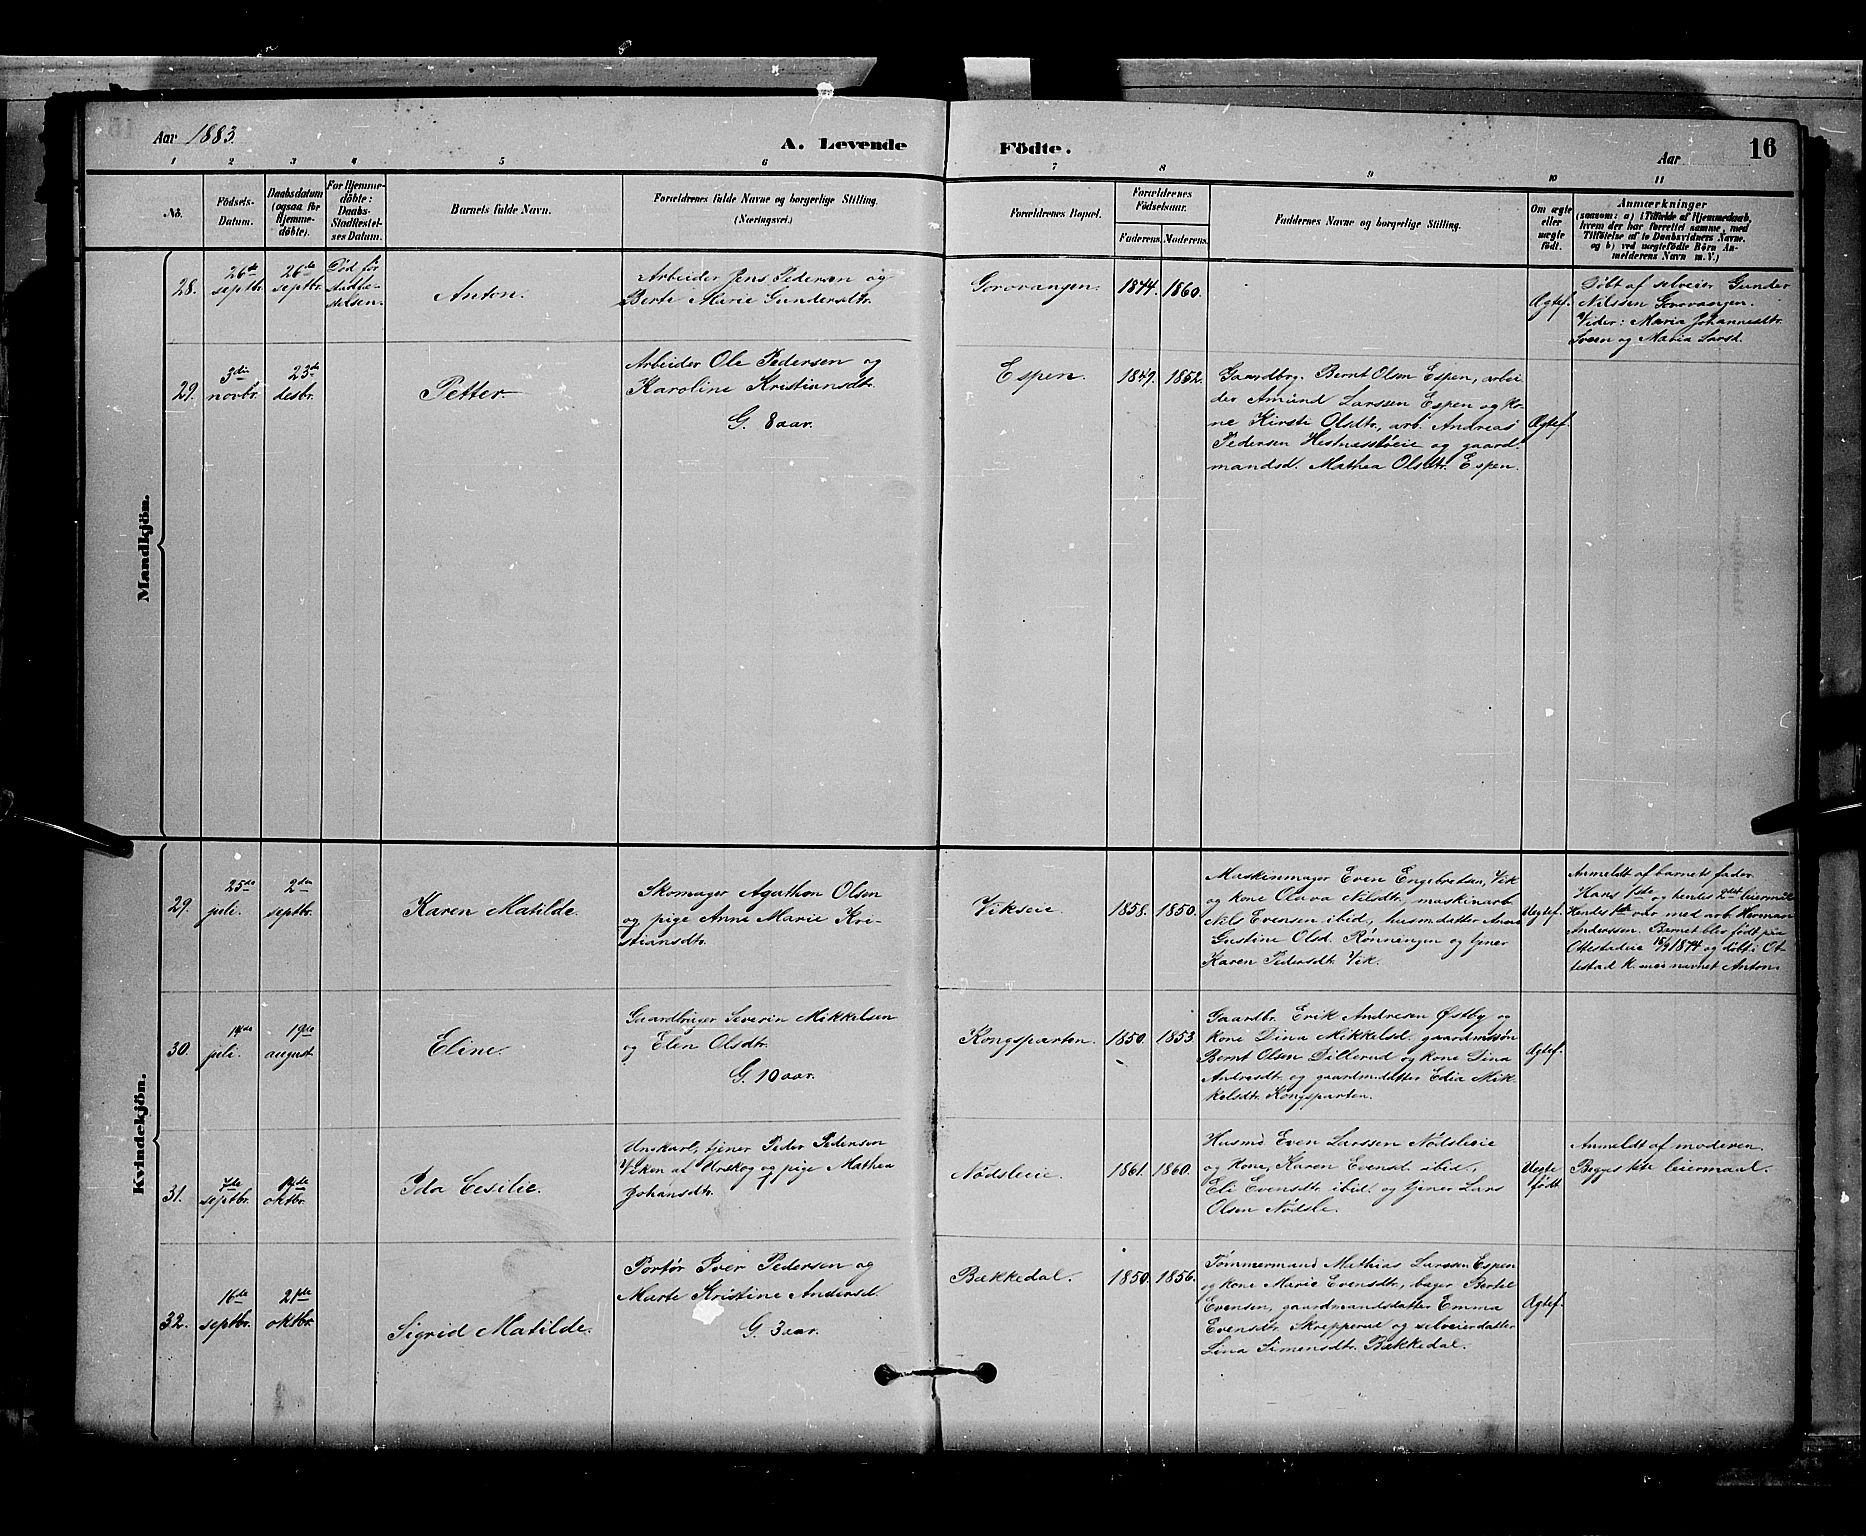 Aar 1883.
A. Levende Födte.
Aar
16
1 2 3 4 5 6 7 8 9 10 11
No.
Födsels-
Datum.
Daabsdatum
(ogsaa for
Hjemme-
döbte).
For Hjemme-
döbte:
Daabs-
Stadfestel-
ses Datum.
Barnets fulde Navn.
Forældrenes fulde Navne og borgerlige Stilling.
(Næringsvei.)
Forældrenes Bopæl.
Forældrenes
Födselsaar.
Faderens. Moderens.
Faddernes Navne og borgerlige Stilling.
Om ægte
eller
uægte
födt.
Anmærkninger
(saasom: a) i Tilfælde af Hjemmedaab,
hvem der har forrettet samme, med
Tilföielse af to Daabsvidners Navne.
og b) ved uægtefödte Börn An-
melderens Navn m. V.)
Mandkjön.
28.
26de
septbr.
26de
septbr.
Død før
stadfæ-
stelsen.
Anton.
Arbeider Jens Pedersen og
Berte Marie Gundersdtr.
Gorovangen.
1844. 1860.
Ægtef.
Døbt af selveier Gunder
Nilssen Gorovangen.
Vidner: Maria Johannesdtr.
Sveen og Maria Larsd.
29.
3die
novbr.
23de
desbr.
Petter
Arbeider Ole Pedersen og
Karoline Kristiansdtr.
G. 8 aar.
Espen.
1849. 1852.
Gaardbrg. Bernt Olsn Espen, arbei-
der Amund Larssen Espen og ko-
ne Kirsti Olsdtr., arb. Andreas
Pedersen Hestnesstøeie og gaard-
mandsd. Mathea Olsdtr. Espen.
Ægtef.
Kvindekjön.
29.
25de
juli.
2den
septbr.
Karen Matilde.
Skomager Agathon Olsen
og pige Anne Marie Kri-
stiansdtr.
Vikseie.
1858. 1850.
Maskinmager Even Engebretsen, Vik
og kone Olava Nilsdtr., maskinarb.
Nils Evensen ibid, husmdatter Anne
Gustine Olsd. Rønningen og tjener
Karen Pedersdtr. Vik.
Uegtef.
Anmeldt af barnets fader.
Hans 1ste og hendes 2det leiermaal
Hendes 1ste var med arb. Herman
Anderssen. Barnet blev født paa
Ottestadeie 15/9 1874 og døbt i Ot-
testad K. med navnet Anton.
30.
14de
juli.
19de
august.
Eline.
Gaardbruger Severin Mikkelsen
og Elen Olsdtr.
G. 10 aar.
Kongsparten.
1850. 1853.
Gaardbr. Erik Andresen Østby og
kone Dina Mikkelsd. gaardmssøn
Bernt Olsen Dillerud og kone Dina
Andresdtr. og gaardmdatter Edia Mik-
kelsdtr. Kongsparten.
Ægtef.
31.
7de
septbr.
14de
oktbr.
Ida Cesilie.
Ungkarl, tjener Peder Pedersen
Viken af Urskog og pige Mathea
Johansdtr.
Nødsleie.
1861. 1860.
Husmd Even Larssen Nødsleie
og kone, Karen Evensd. ibid.,
Eli Evensdtr. ibid. og tjener Lars
Olsen Nødsle.
Uegte
født
Anmeldt af moderen.
Begges 1ste leiermaal.
32.
16de
septbr.
21de
oktbr.
Sigrid Matilde.
Portør Iver Pedersen og
Marte Kristine Andersd.
G. 3 aar.
Bækkedal.
1850. 1856.
Tømmermand Mathias Larssen Espen
og kone Marie Evensdtr., bager Bertel
Evensen, gaardmandsdatter Emma
Evensdtr. Skrepperud og selveierdatter
Lina Simensdtr. Bækkedal.
Ægtef.